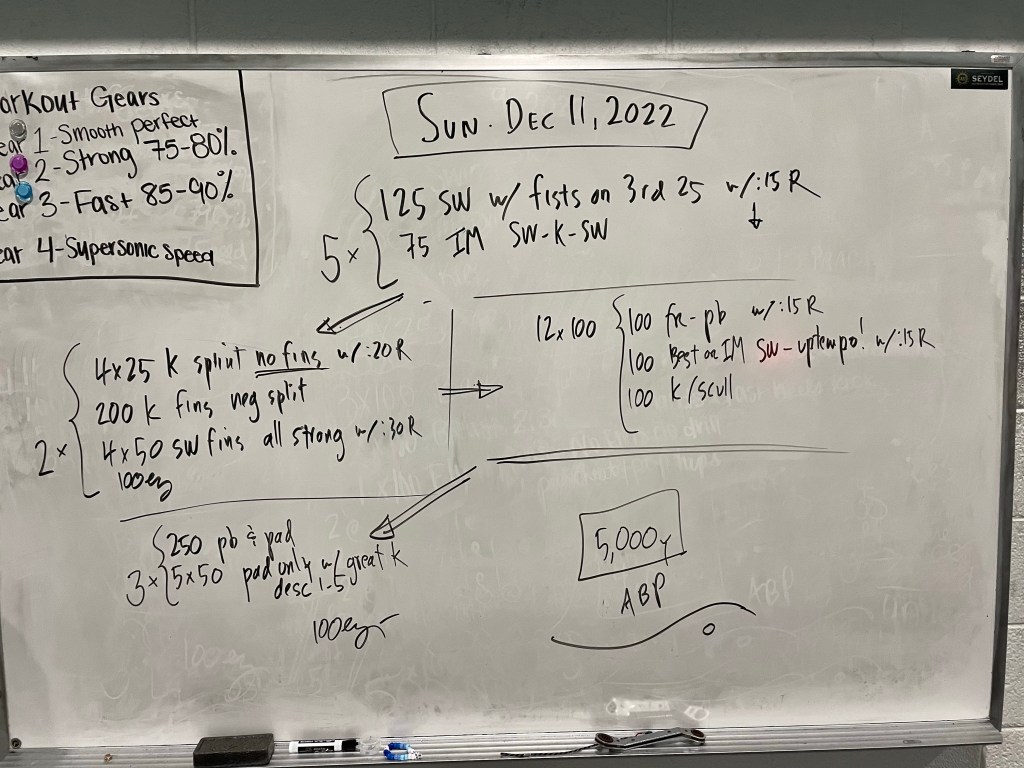 SEYDEL
orkout Gears
ear 1-Smooth perfect
ear 2-Strong 75-80%
ear 3-Fast 85-90%
ear 4-Supersonic speed
SUN. DEC 11, 2022
5x
125 SW w/ fists on 3rd 25 w/:15 R
75 IM SW-K-SW
2x
4x25 K sprint no fins w/:20R
200 K fins neg split
4x50 SW fins all strong w/:30R
100ez
12x100
100 fre-pb w/:15 R
100 Best or IM SW-uptempo! w/:15R
100 K/scull
3x
250 pb & pad
5x50 pad only w/great K
desc 1-5
100ez
5,000y
ABP